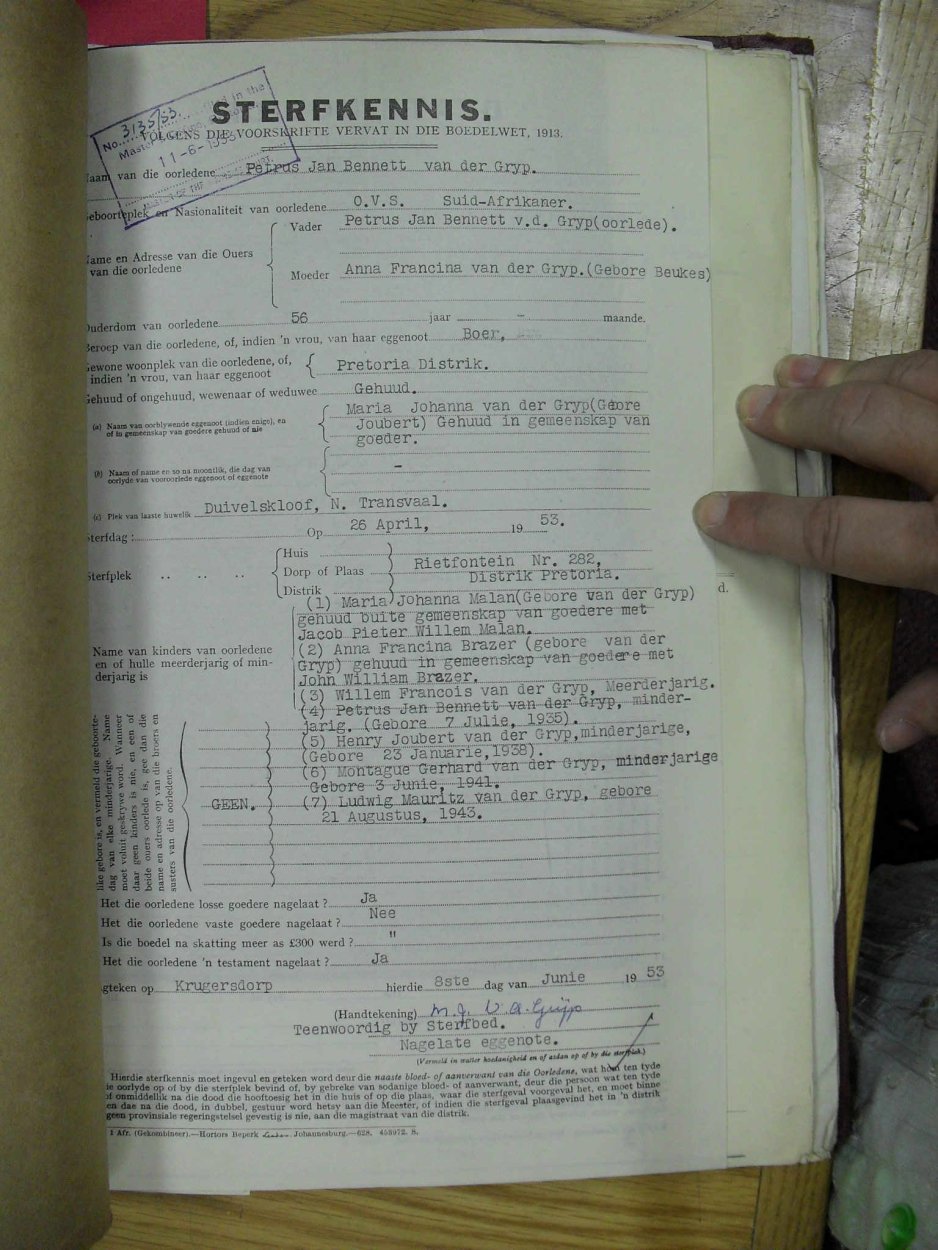 STERFKENNIS.
VOLGENS DIE VOORSKRIFTE VERVAT IN DIE BOEDELWET, 1913.
No. 3135/53.
in the
Master's
11-6-1953
Naam van die oorledene Petrus Jan Bennett van der Gryp.
Geboorteplek en Nasionaliteit van oorledene O.V.S. Suid-Afrikaner.
Name en Adresse van die Ouers van die oorledene
Vader Petrus Jan Bennett v.d. Gryp(oorlede).
Moeder Anna Francina van der Gryp.(Gebore Beukes)
Ouderdom van oorledene 56 jaar - maande.
Beroep van die oorledene, of, indien 'n vrou, van haar eggenoot Boer,
Gewone woonplek van die oorledene, of,
indien 'n vrou, van haar eggenoot Pretoria Distrik.
Gehuud of ongehuud, wewenaar of weduwee Gehuud.
(a) Naam van oorblywende eggenoot (indien enige), en
of in gemeenskap van goedere gehuud of nie
Maria Johanna van der Gryp(Gebore
Joubert) Gehuud in gemeenskap van
goeder.
(b) Naam of name en so na moontlik, die dag van
oorlyde van vooroorlede eggenoot of eggenote -
(c) Plek van laaste huwelik Duivelskloof, N. Transvaal.
Sterfdag : Op 26 April, 19 53.
Sterfplek .. .. ..
Huis
Dorp of Plaas Rietfontein Nr. 282,
Distrik Distrik Pretoria.
Name van kinders van oorledene
en of hulle meerderjarig of min-
derjarig is
(1) Maria Johanna Malan(Gebore van der Gryp)
gehuud buite gemeenskap van goedere met
Jacob Pieter Willem Malan.
(2) Anna Francina Brazer (gebore van der
Gryp) gehuud in gemeenskap van goedere met
John William Brazer.
(3) Willem Francois van der Gryp, Meerderjarig.
(4) Petrus Jan Bennett van der Gryp, minder-
jarig. (Gebore 7 Julie, 1935).
(5) Henry Joubert van der Gryp,minderjarige,
(Gebore 23 Januarie,1938).
(6) Montague Gerhard van der Gryp, minderjarige
Gebore 3 Junie, 1941.
(7) Ludwig Mauritz van der Gryp, gebore
21 Augustus, 1943.
GEEN.
like gebore is, en vermeld die geboorte-
dag van elke minderjarige. Name
moet voluit geskrywe word. Wanneer
daar geen kinders is nie, en een of
beide ouers oorlede is, gee dan die
name en adresse op van die broers en
susters van die oorledene.
d.
Het die oorledene losse goedere nagelaat ? Ja
Het die oorledene vaste goedere nagelaat ? Nee
Is die boedel na skatting meer as £300 werd ? "
Het die oorledene 'n testament nagelaat ? Ja
Geteken op Krugersdorp hierdie 8ste dag van Junie 19 53
(Handtekening) M. J. V. d. Gryp
Teenwoordig by Sterfbed.
Nagelate eggenote.
(Vermeld in watter hoedanigheid en of asdan op of by die sterfplek.)
Hierdie sterfkennis moet ingevul en geteken word deur die naaste bloed- of aanverwant van die Oorledene, wat hom ten tyde
die oorlyde op of by die sterfplek bevind of, by gebreke van sodanige bloed- of aanverwant, deur die persoon wat ten tyde
of onmiddellik na die dood die hooftoesig het in die huis of op die plaas, waar die sterfgeval voorgeval het, en moet binne
en dae na die dood, in dubbel, gestuur word hetsy aan die Meester, of indien die sterfgeval plaasgevind het in 'n distrik
geen provinsiale regeringstelsel gevestig is nie, aan die magistraat van die distrik.
1 Afr. (Gekombineer).—Hortors Beperk Johannesburg.—628. 458972. S.